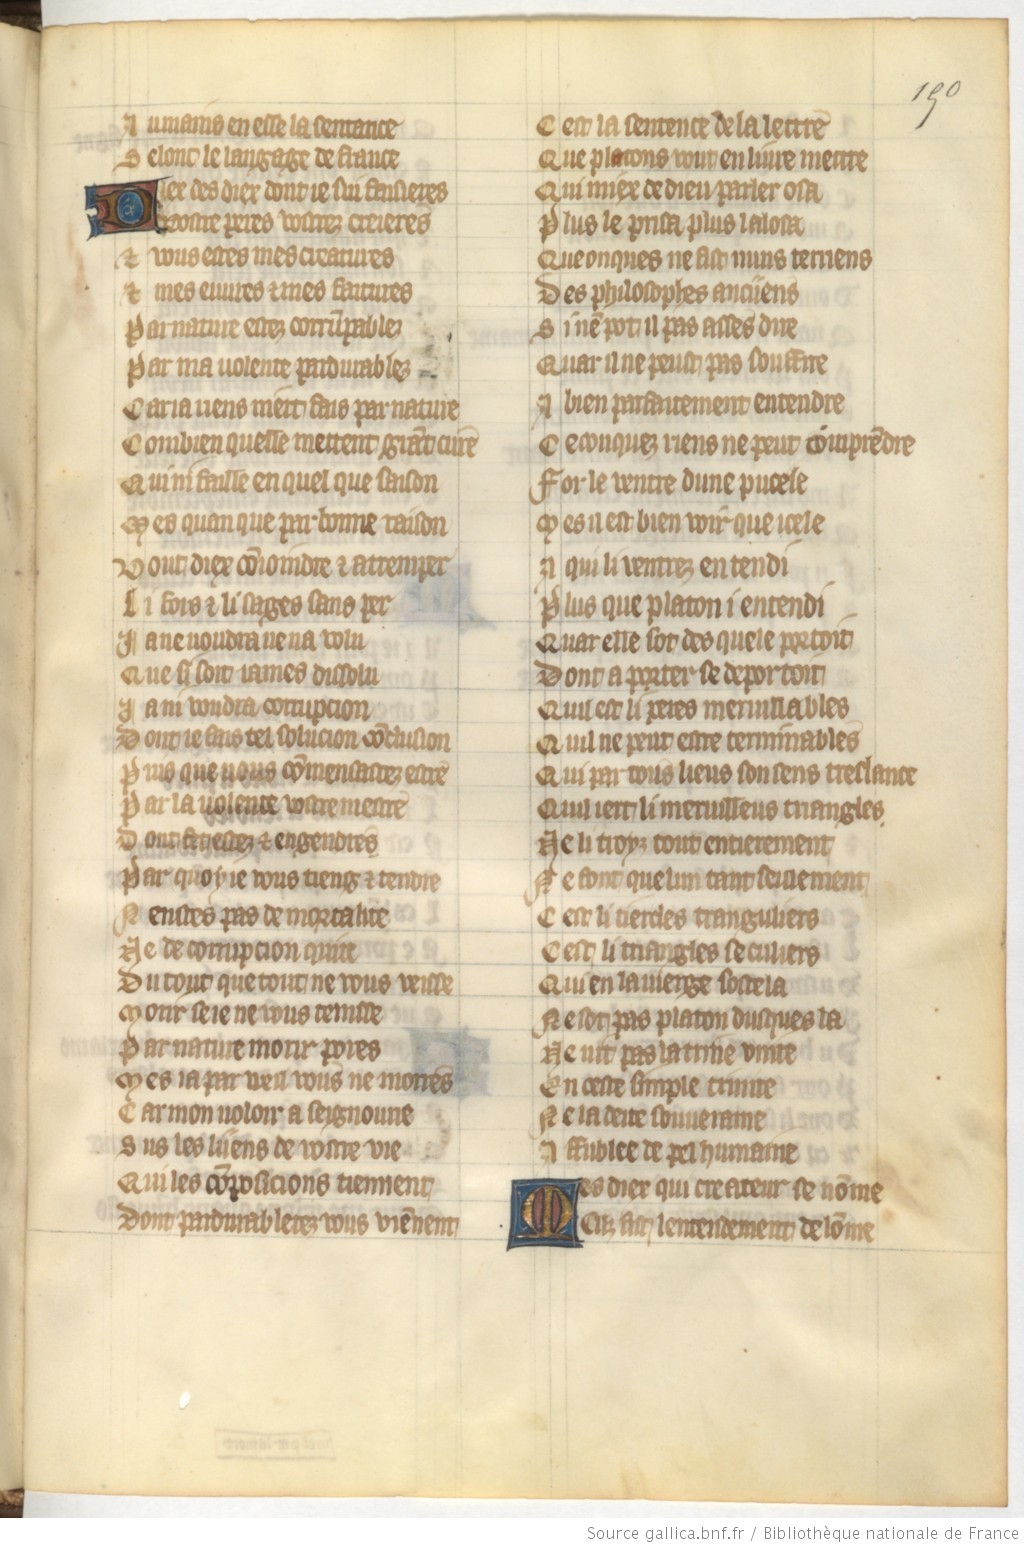 190
A umains en esse la sentance
S elonc le langage de france
D iex des diex dont ie sui faisieres
Vostre peres vostrez creieres
Et vous estes mes creatures
Et mes euures & mes faitures
Par nature estez corrũpablez
Par ma volente pardurablez
Car ia riens niert fais par nature
Combien quelle mettent grãt cure
Qui ni faille en quel que saison
Mes quan que par bonne raison
Vout diex cõioindre & attemper
Li fors & li sages sans per
Ia ne voudra ne na volu
Que sil soit iames dissolu
Ia ni vendra corrupcion
Dont ie fais tel solucion cõclusion
Puis que vous cõmensastez estre
Par la volente vostre mestre
Dont fet estez & engendres
Par quoy ie vous tieng & tendre
Nen stes pas de mortalite
Ne de corrupcion quite
Du tout que tout ne vous veisse
Morir se ie ne vous tenisse
Par nature morir pores
Mes ia par veu vous ne mores
Car mon voloir a seignourie
Sus les liiens de vostre vie
Qui les cõposicions tiennent
Dont pardurabletez vous viẽnent
C est la sentence de la lettre
Que platons vout en liure mettre
Qui miex de dieu parler osa
Plus le prisa plus lalosa
Que onques ne fist nuns terriens
Des philosophes anciiens
Si nẽ pot il pas asses dire
Quar il ne peust pas souffire
A bien parfaitement entendre
Ce conquez riens ne peut cõmprẽdre
For le ventre dune pucele
Mes il est bien voir que icele
A qui li ventrez en tendi
Plus que platon i entendi
Quar elle sot des quele portoit
Dont a porter se deportoit
Quil est li peres meruillables
Quil ne peut estre terminables
Qui par tous lieus son sens treslance
Quil iert li merueilleus triangles
Ne li troys tout entierement
Ne sont que lun tant seulement
Cest li cercles tranguliers
Cest li triangles seculiers
Qui en la vierge sostela
Ne sot pas platon dusques la
Ne vit pas la trine vnite
En ceste simple trinite
Ne la deite souueraine
Affublee de pel humaine
Mes diex qui createur se nõme
Cilz fist lentendement de lõme
Source gallica.bnf.fr / Bibliothèque nationale de France